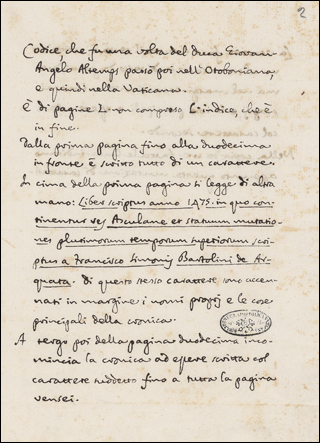 2
Codice che fu una volta del duca Giovan-
Angelo Altemps passò poi nell'Otoboniana,
e quindi nella Vaticana.
È di pagine L. non compreso l'indice, che è
in fine.
Dalla prima pagina fino alla duodecima
in fronte è scritto tutto di un carattere.
In cima della prima pagina si legge di altra
mano: Liber scriptus anno 1475. in quo con-
tinentur res Asculane et statuum mutatio-
nes plurimorum temporum superiorum scri-
ptus a Francisco Simonis Bartolini de Ar-
quata. di questo stesso carattere sono accen-
nati in margine i nomi proprj e le cose
principali della cronica.
A tergo poi della pagina duodecima inco-
mincia la cronica ad essere scritta col
carattere suddetto fino a tutta la pagina